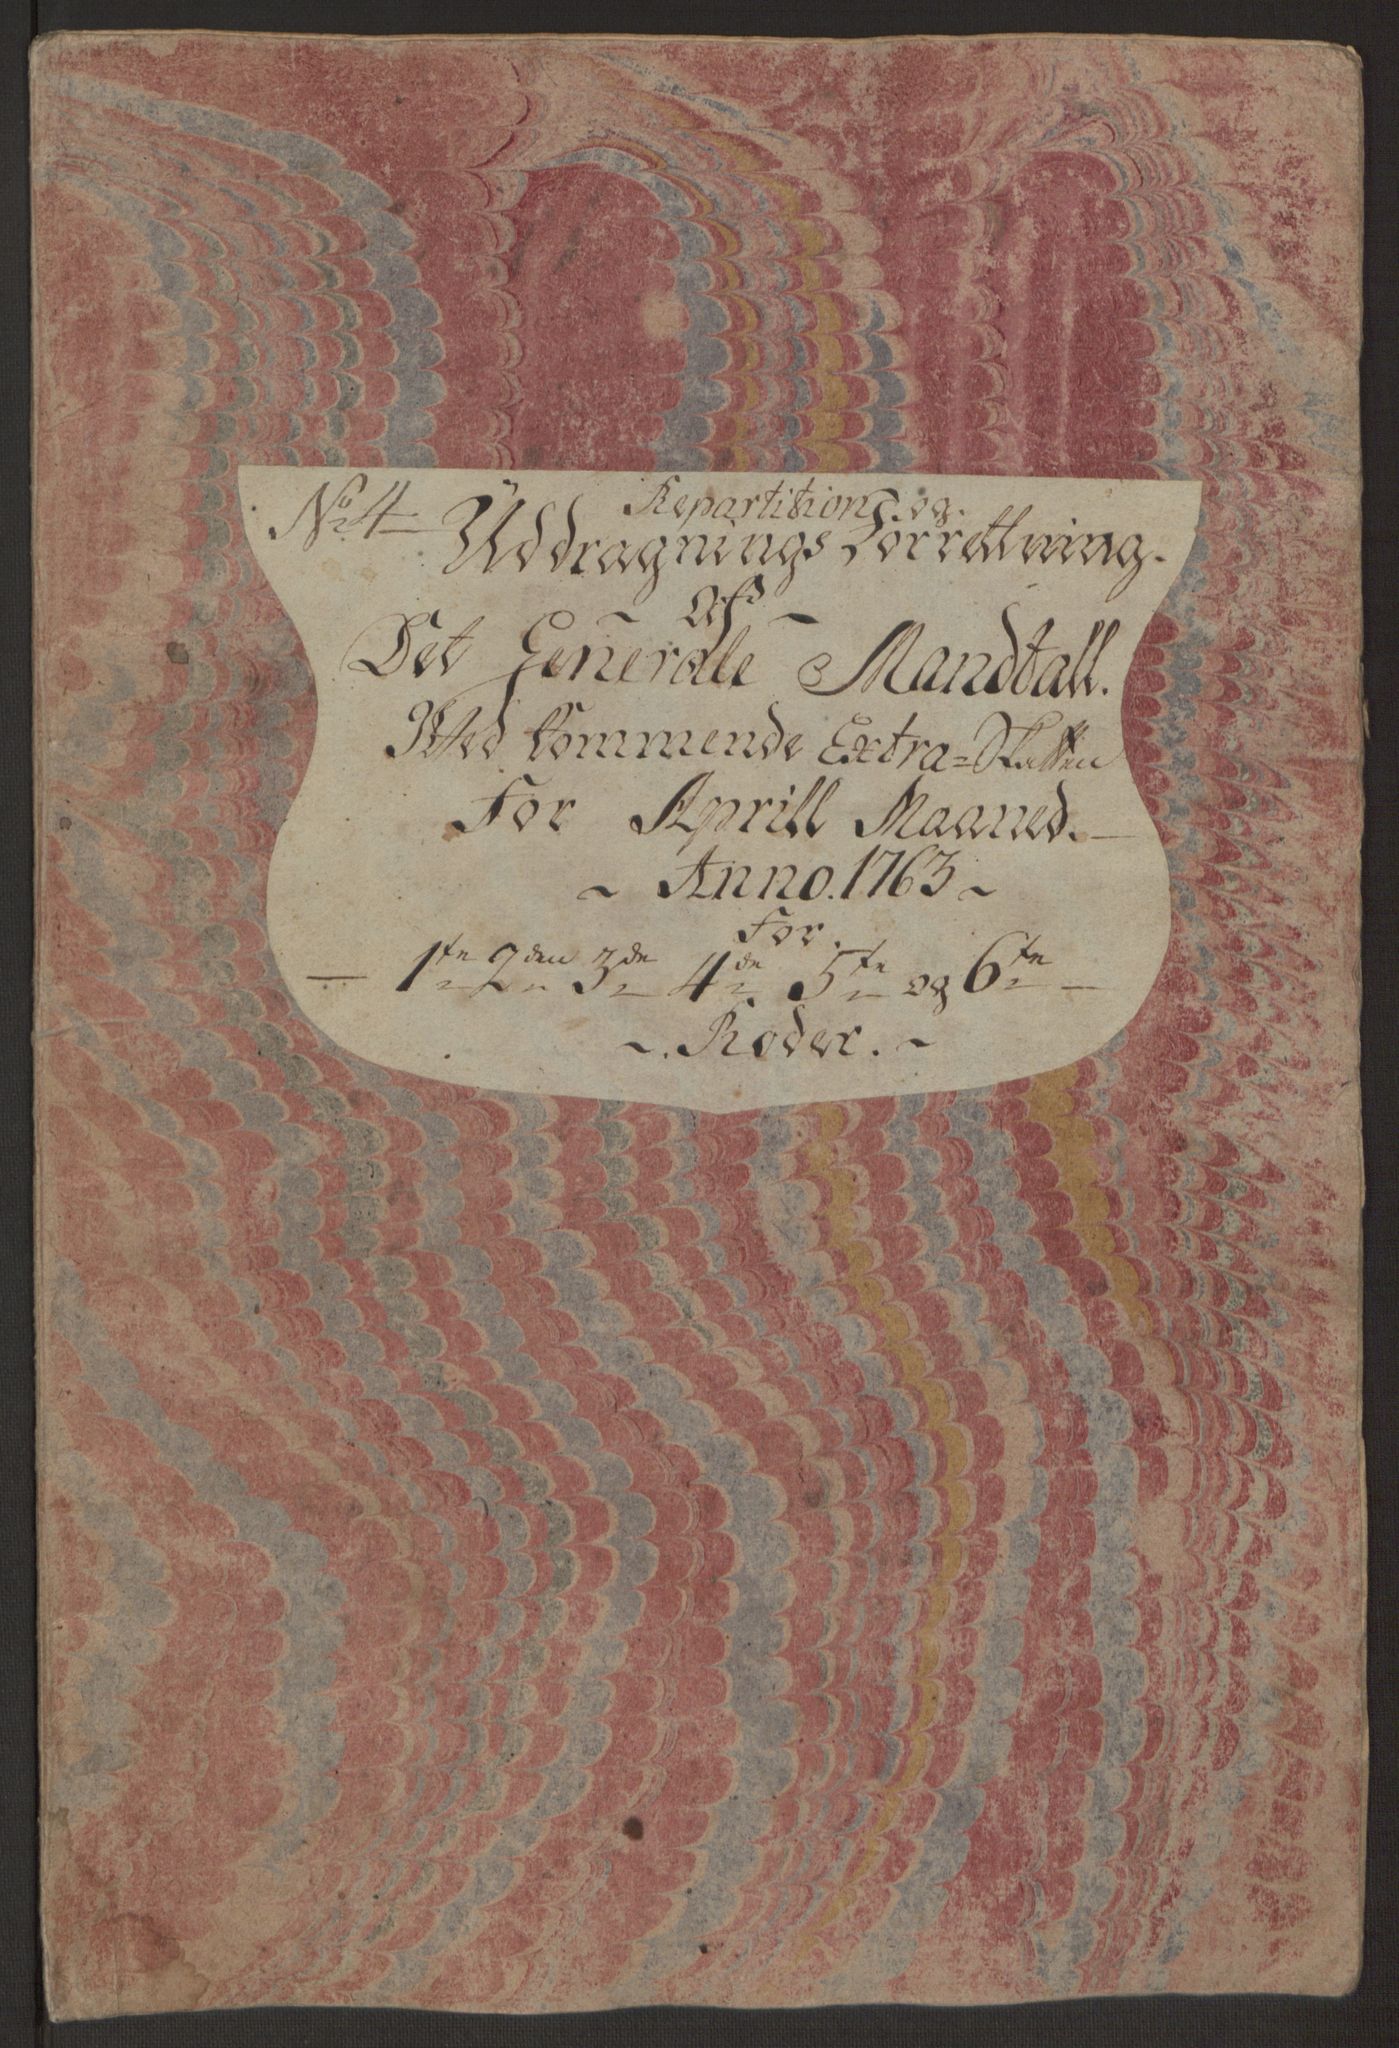 Repartitions og
No 4 Uddragnings Forretning.
~ af ~
Det Generale Mandtall.
Ved kommende Extra=Skatten
For Aprill Maaned. —
~ Anno. 1763 ~
For.
— 1ste 2den 3de 4de 5te og 6te —
~. Roder. ~